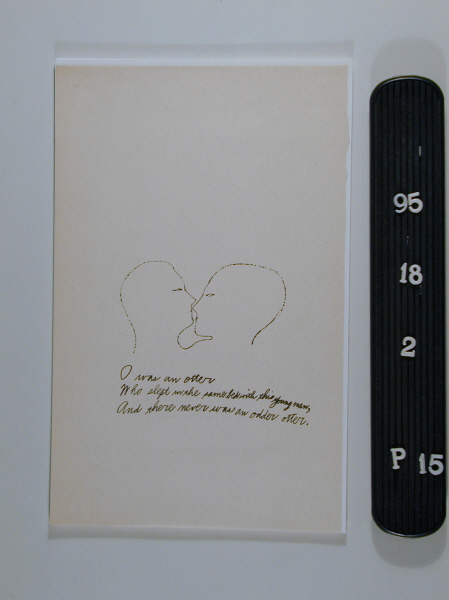 O was an otter
Who slept in the same bed with this young man,
And there never was an odder otter.
95
18
2
P 15